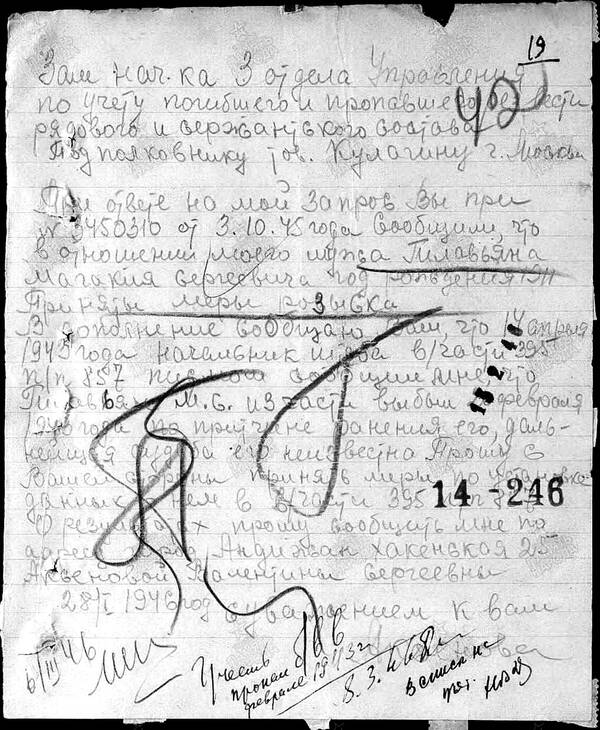 19
Зам нач. ка 3 отдела Управления
по учету погибшего и пропавшего без вести
рядового и сержантского состава
Подполковнику тов. Кулагину г. Москва
При ответе на мой запрос Вы при
№ 3450310 от 3.10.45 года сообщили, что
в отношении моего мужа Гилавьяна
Магакия Сергеевича год рождения
Приняты меры розыска
В дополнение сообщаю Вам, что 14 апреля
1943 года начальник штаба в/части 395
п/п 857 письмом сообщил мне что
М.С. из части выбыл февраля
года по причине ранения его, даль-
нейшая судьба его неизвестна Прошу с
Вашей стороны принять меры по установке
данных о нем в в/части 395
О результатах прошу сообщить мне по
адресу Андижан Хакенская 25
Аксеновой Валентины Сергеевны
28/I 1946 год с уважением к вам
14-246
6/III 46
Учесть
пропал б/в
феврале 1943 г
8.3.46